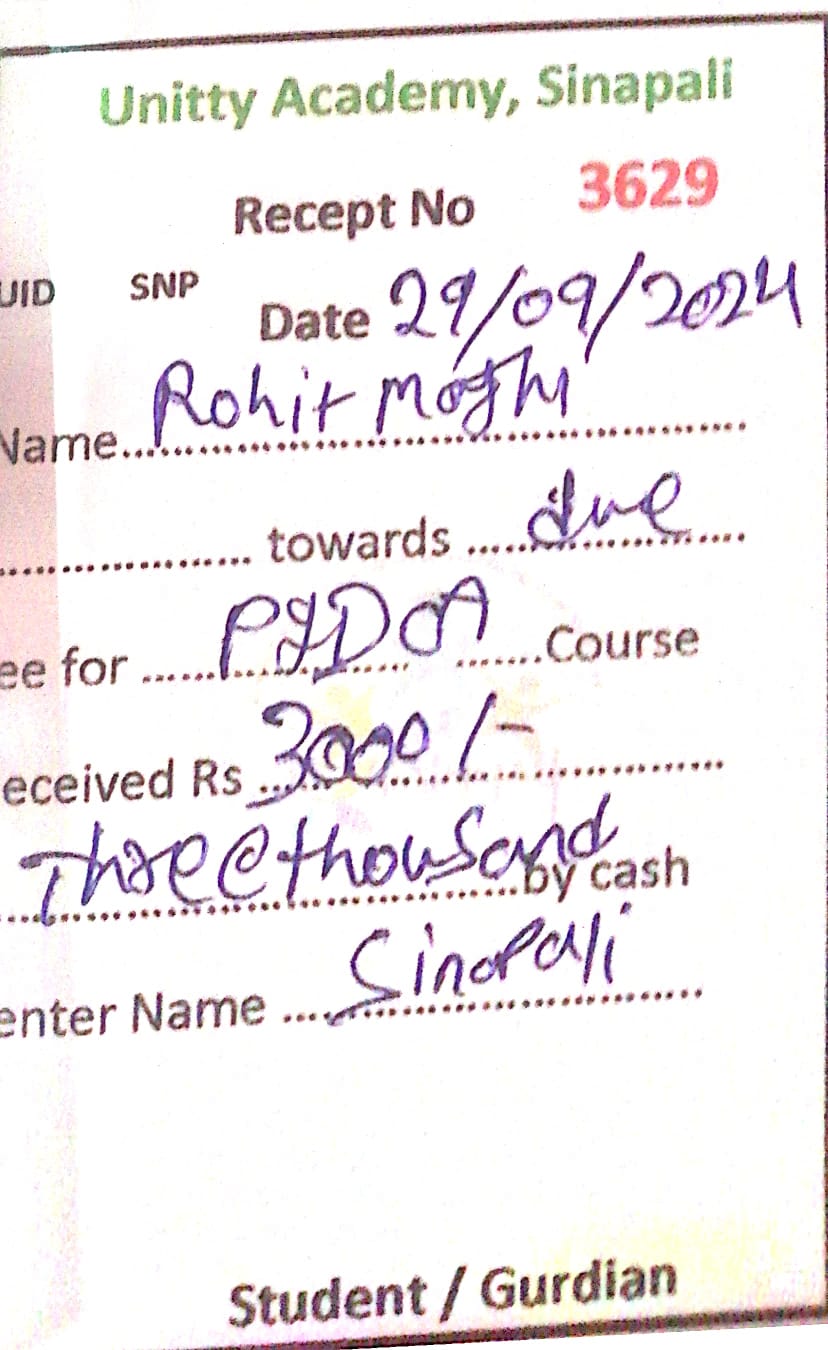 Unitty Academy, Sinapali
Recept No 3629
UID SNP
Date 29/09/2024
Name.......Rohit Majhi
.................... towards .....due
ee for ......PGDCA .......Course
eceived Rs 3000/-
Three thousand by cash
enter Name ....Sinapali
Student / Gurdian